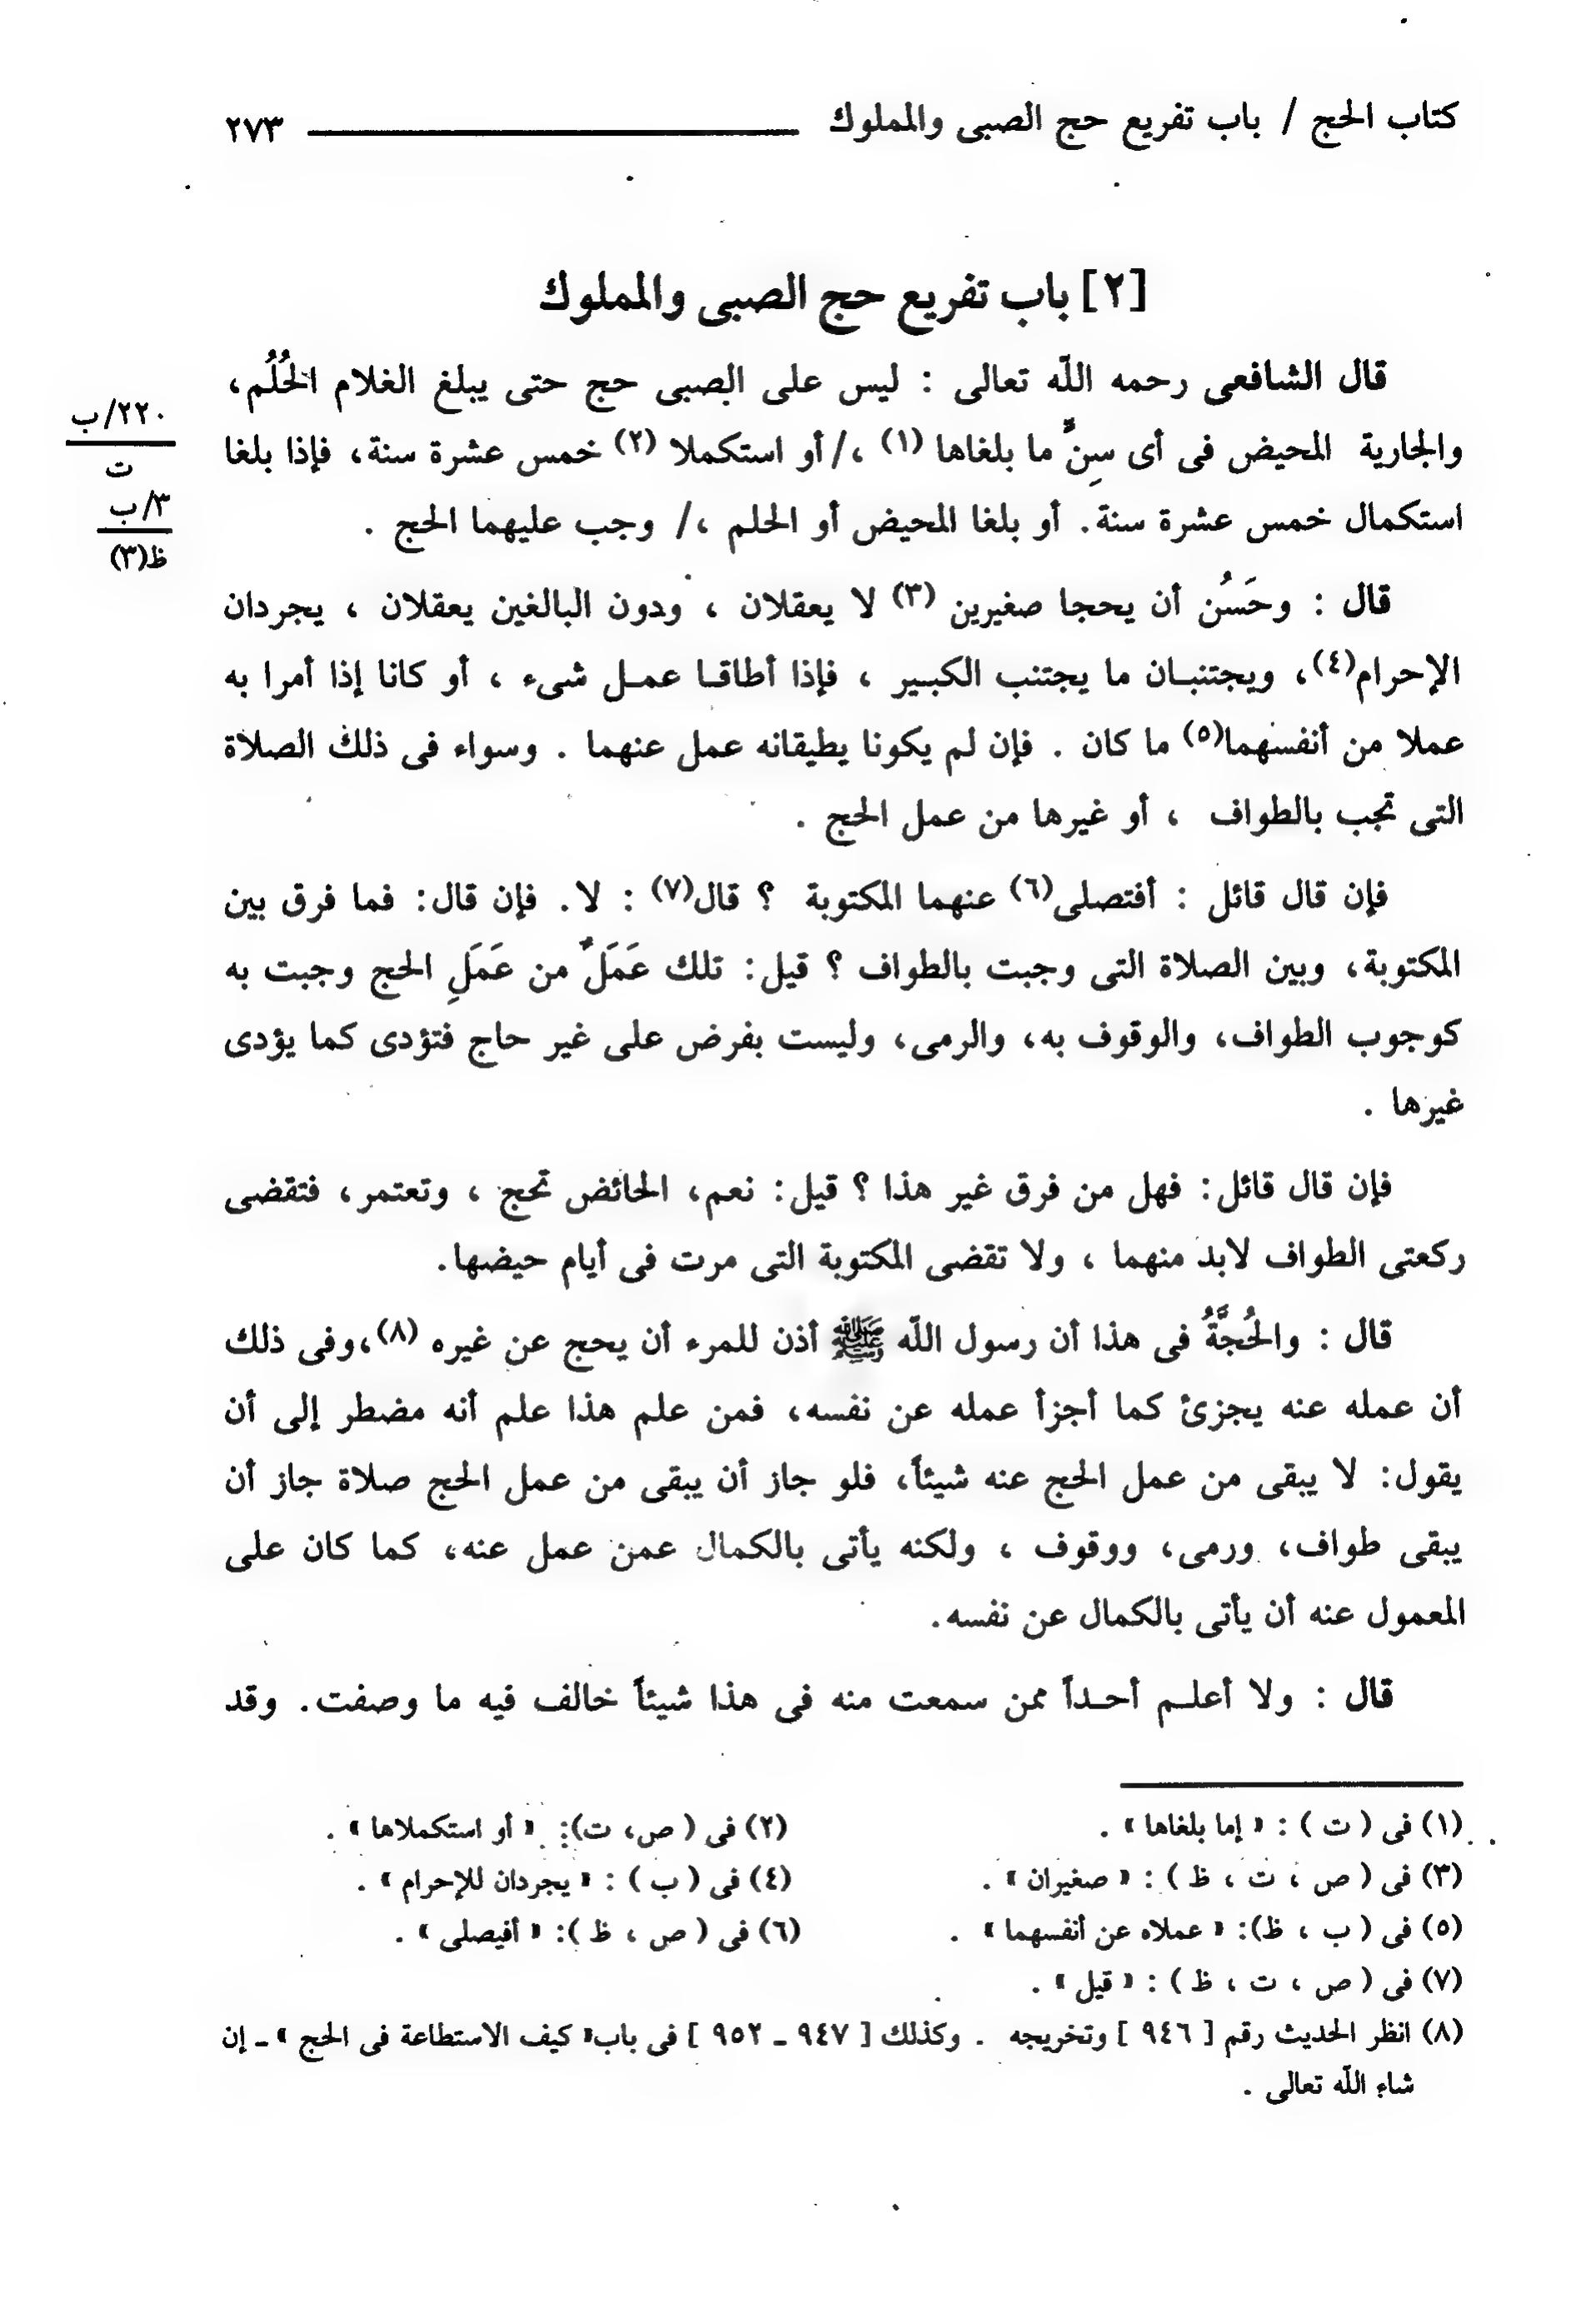 كتاب الحج / باب تفريع حج الصبى والمملوك ٢٧٣
[٢] باب تفريع حج الصبى والمملوك
قال الشافعى رحمه الله تعالى : ليس على الصبى حج حتى يبلغ الغلام الحُلُم،
والجارية المحيض فى أى سِنٍّ ما بلغاها (١) ،/ أو استكملا (٢) خمس عشرة سنة، فإذا بلغا
استكمال خمس عشرة سنة. أو بلغا المحيض أو الحلم ،/ وجب عليهما الحج .
٢٢٠/ب
ت
٣/ب
ظ(٣)
قال : وحَسُن أن يحجا صغيرين (٣) لا يعقلان ، ودون البالغين يعقلان ، يجردان
الإحرام(٤)، ويجتنبـان ما يجتنب الكبـير ، فإذا أطاقـا عمـل شىء ، أو كانا إذا أمرا به
عملا من أنفسهما(٥) ما كان . فإن لم يكونا يطيقانه عمل عنهما . وسواء فى ذلك الصلاة
التى تجب بالطواف ، أو غيرها من عمل الحج .
فإن قال قائل : أفتصلى(٦) عنهما المكتوبة ؟ قال(٧) : لا. فإن قال: فما فرق بين
المكتوبة، وبين الصلاة التى وجبت بالطواف ؟ قيل: تلك عَمَلٌ من عَمَلِ الحج وجبت به
كوجوب الطواف، والوقوف به، والرمى، وليست بفرض على غير حاج فتؤدى كما يؤدى
غيرها .
فإن قال قائل: فهل من فرق غير هذا ؟ قيل: نعم، الحائض تحج ، وتعتمر، فتقضى
ركعتى الطواف لابد منهما ، ولا تقضى المكتوبة التى مرت فى أيام حيضها.
قال : والحُجَّةُ فى هذا أن رسول الله ﷺ أذن للمرء أن يحج عن غيره (٨)،وفى ذلك
أن عمله عنه يجزئ كما أجزأ عمله عن نفسه، فمن علم هذا علم أنه مضطر إلى أن
يقول: لا يبقى من عمل الحج عنه شيئاً، فلو جاز أن يبقى من عمل الحج صلاة جاز أن
يبقى طواف، ورمى، ووقوف ، ولكنه يأتى بالكمال عمن عمل عنه، كما كان على
المعمول عنه أن يأتى بالكمال عن نفسه.
قال : ولا أعلـم أحـداً ممن سمعت منه فى هذا شيئاً خالف فيه ما وصفت. وقد
(١) فى ( ت ) : « إما بلغاها » . (٢) فى ( ص، ت): « أو استكملاها » .
(٣) فى ( ص ، ت ، ظ ) : « صغيران » . (٤) فى ( ب ) : « يجردان للإحرام » .
(٥) فى ( ب ، ظ): « عملاه عن أنفسهما » . (٦) فى ( ص ، ظ ): « أفيصلى » .
(٧) فى ( ص ، ت ، ظ ) : « قيل » .
(٨) انظر الحديث رقم [ ٩٤٦ ] وتخريجه . وكذلك [ ٩٤٧ ـ ٩٥٢ ] فى باب« كيف الاستطاعة فى الحج » ـ إن
شاء الله تعالى .